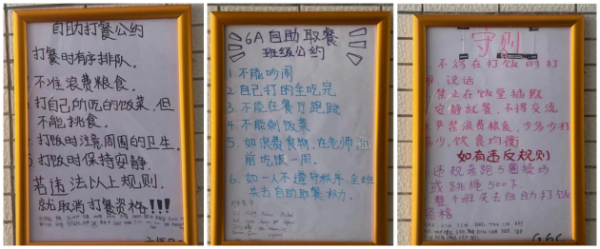 自助打餐公约
打餐时有序排队.
不准浪费粮食.
打自己所吃的饭菜.但
不能挑食.
打饭时注意周围的卫生.
打饭时保持安静.
若违法以上规则.
就取消打餐资格!!!
6A自助取餐
班级公约
1.不能吵闹
2.自己打的全吃完
3.不能在餐厅跑跳
4.不能剩饭菜
5.如浪费食物,在老师
前吃饭一周.
6.如一人不遵守秩序,全班
失去自助取餐权力.
守则
不得在打饭时打
说话
禁止在饭堂插队
安静就餐,不得交流
严禁浪费粮食,少多少打
少,饮食均衡
如有违反规则
违规者跑5圈操场
或跳绳500下
整个班失去自助打饭
资格